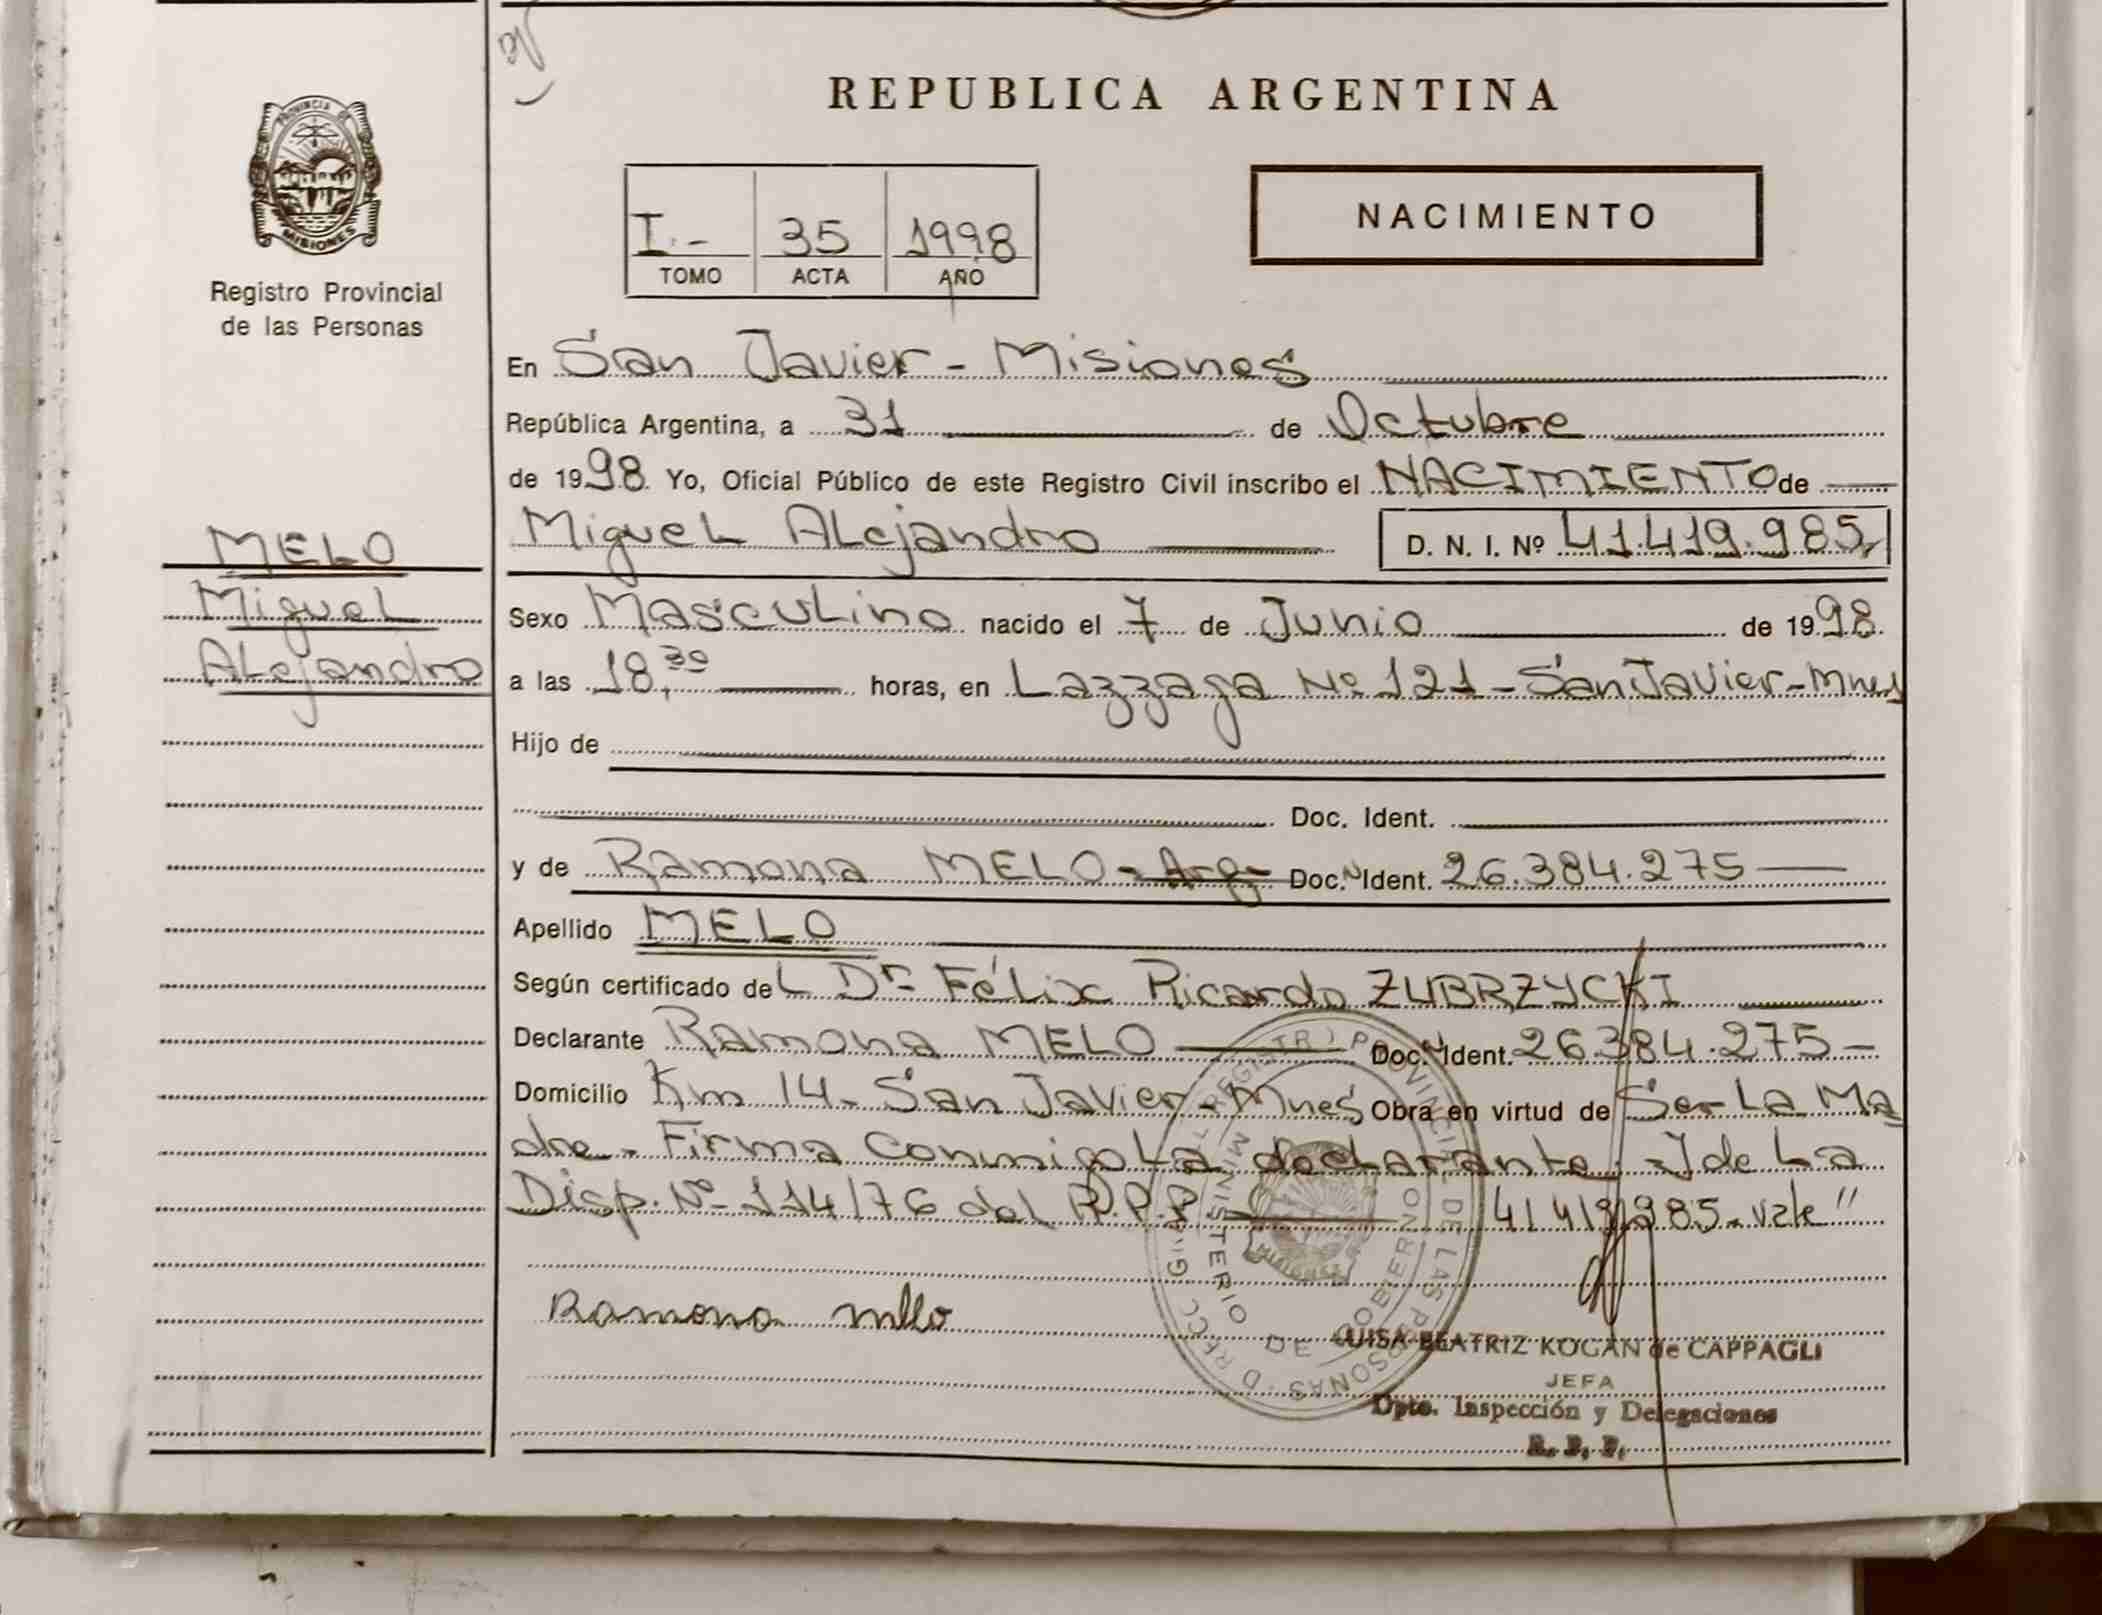 REPUBLICA ARGENTINA
PROVINCIA DE
MISIONES
Registro Provincial
de las Personas
I.- 35 1998
TOMO ACTA AÑO
NACIMIENTO
En San Javier - Misiones
República Argentina, a 31 de Octubre
de 1998. Yo, Oficial Público de este Registro Civil inscribo el NACIMIENTO de
MELO
Miguel Alejandro D. N. I. Nº 41.419.985
Miguel
Sexo Masculino nacido el 7 de Junio de 1998.
Alejandro
a las 18,30 horas, en Lazzaga Nº 121 - San Javier - Mnes
Hijo de
Doc. Ident.
y de Ramona MELO - Arg - Doc. Ident. 26.384.275
Apellido MELO
Según certificado del Dr. Félix Ricardo ZUBRZYCKI
Declarante Ramona MELO Doc. Ident. 26.384.275 -
Domicilio Km 14 - San Javier - Mnes Obra en virtud de Ser La Ma
dre - Firma Conmigo La declarante - J de La
Disp. Nº 114/76 del R.P.P. 41419985 - vale "
Ramona mllo
DIRECC. GRAL. REGISTRO PROVINCIAL DE LAS PERSONAS
MINISTERIO DE GOBIERNO
MISIONES
LUISA BEATRIZ KOGAN de CAPPAGLI
JEFA
Dpto. Inspección y Delegaciones
R. P. P.